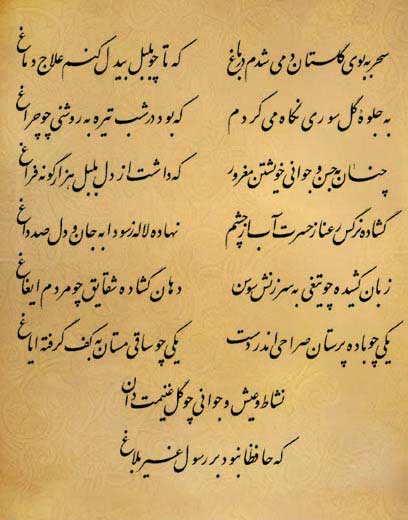 سحر به بوی گلستان دمی شدم در باغ که تا چو بلبل بیدل کنم علاج دماغ
به جلوهٔ گل سوری نگاه می کردم که بود در شب تیره به روشنی چو چراغ
چنان به حسن و جوانی خویشتن مغرور که داشت از دل بلبل هزار گونه فراغ
گشاده نرگس رعنا ز حسرت آب از چشم نهاده لاله ز سودا به جان و دل صد داغ
زبان کشیده چو تیغی به سرزنش سوسن دهان گشاده شقایق چو مردم ایغاغ
یکی چو باده پرستان صراحی اندر دست یکی چو ساقی مستان به کف گرفته ایاغ
نشاط و عیش و جوانی چو گل غنیمت دان
که حافظا نبود بر رسول غیر بلاغ